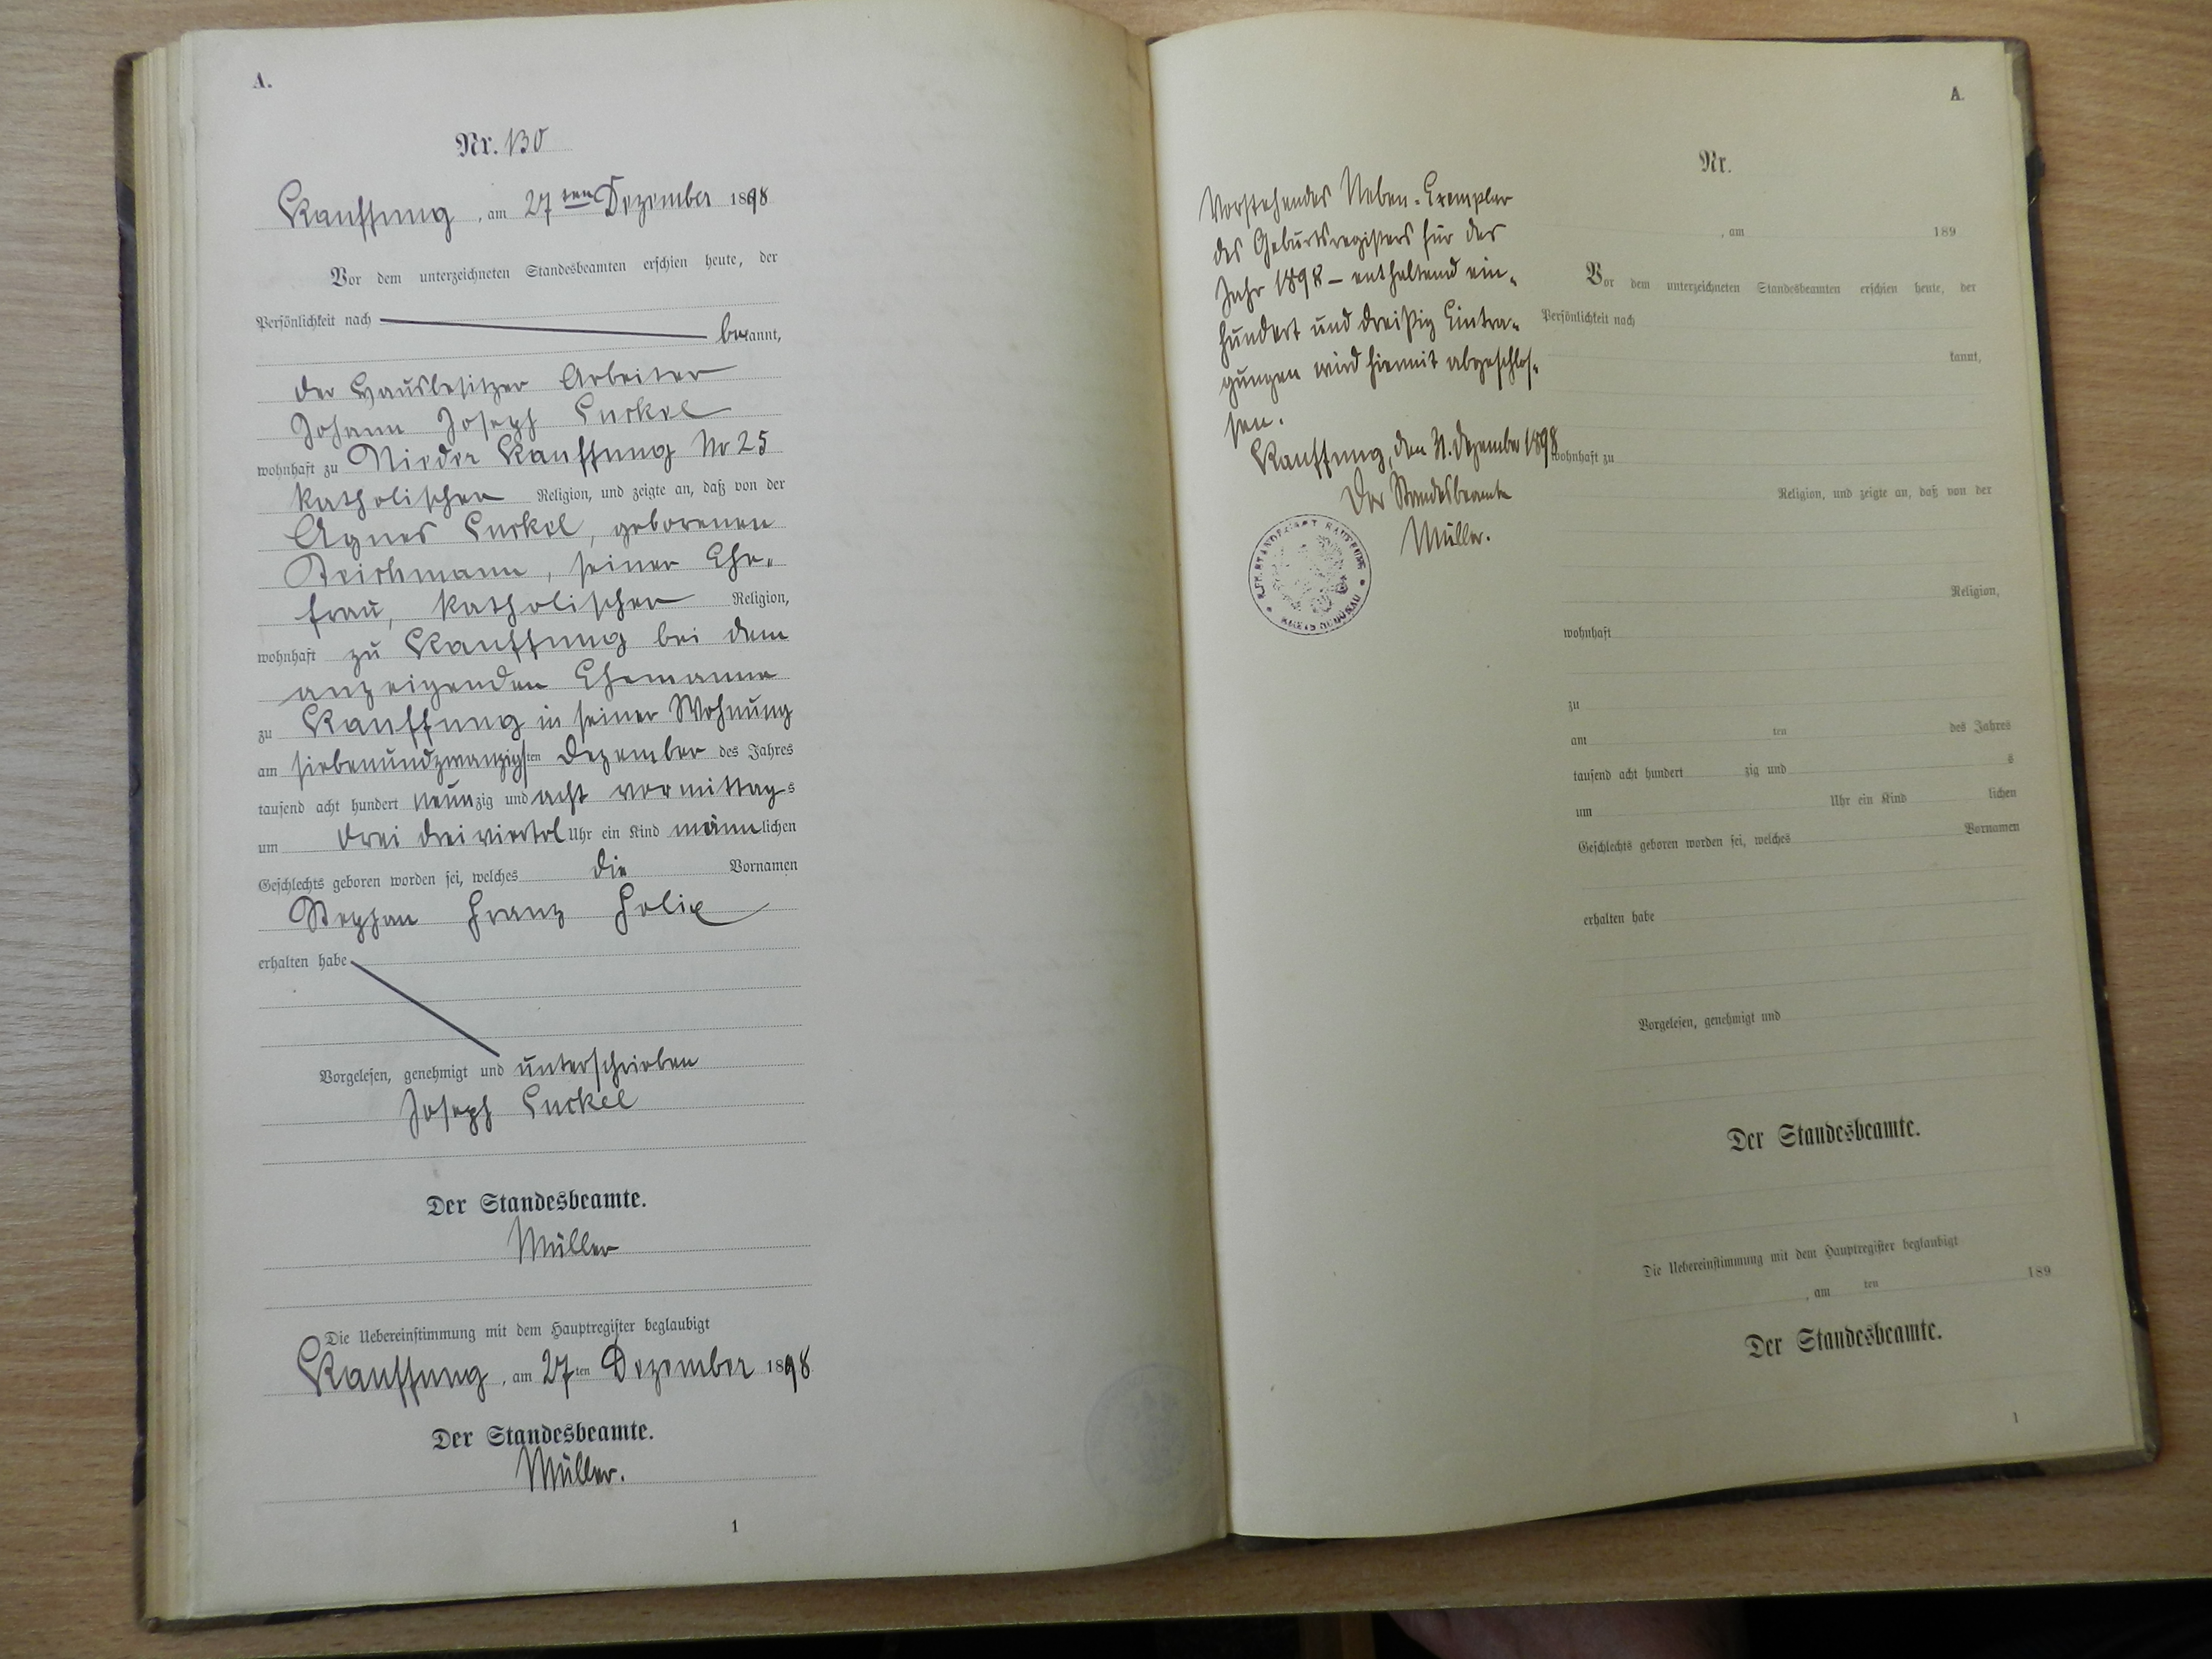 A.
Nr. 130
Kauffung, am 27ten Dezember 1898
Vor dem unterzeichneten Standesbeamten erschien heute, der
Persönlichkeit nach
bekannt,
der Hausbesitzer Arbeiter
Johann Joseph Luckel
wohnhaft zu Nieder Kauffung No 25
katholischer Religion, und zeigte an, daß von der
Agnes Luckel, geborenen
Teichmann, seiner Ehe-
frau, katholischer Religion,
wohnhaft zu Kauffung bei dem
anzeigenden Ehemanne
zu Kauffung in seiner Wohnung
am siebenundzwanzigsten Dezember des Jahres
tausend acht hundert neunzig und acht vormittags
um drei dreiviertel Uhr ein Kind männlichen
Geschlechts geboren worden sei, welches die Vornamen
Stephan Franz Felix
erhalten habe
Vorgelesen, genehmigt und unterschrieben
Joseph Luckel
Der Standesbeamte.
Müller
Die Uebereinstimmung mit dem Hauptregister beglaubigt
Kauffung, am 27ten Dezember 1898
Der Standesbeamte.
Müller.
1
Vorstehendes Neben-Exemplar
des Geburtsregisters für das
Jahr 1898 – enthaltend ein-
hundert und dreißig Eintra-
gungen wird hiermit abgeschlos-
sen.
Kauffung, den 31. Dezember 1898
Der Standesbeamte
Müller.
STANDESAMT KAUFFUNG
KREIS SCHÖNAU
A.
Nr.
, am 189
Vor dem unterzeichneten Standesbeamten erschien heute, der
Persönlichkeit nach
kannt,
wohnhaft zu
Religion, und zeigte an, daß von der
Religion,
wohnhaft
zu
am ten des Jahres
tausend acht hundert zig und s
um Uhr ein Kind lichen
Geschlechts geboren worden sei, welches Vornamen
erhalten habe
Vorgelesen, genehmigt und
Der Standesbeamte.
Die Uebereinstimmung mit dem Hauptregister beglaubigt
, am ten 189
Der Standesbeamte.
1